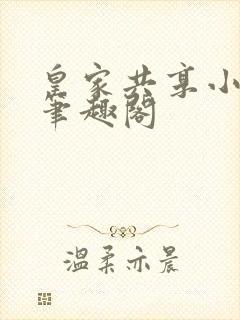 皇家共享小
笔趣阁
温柔亦晨